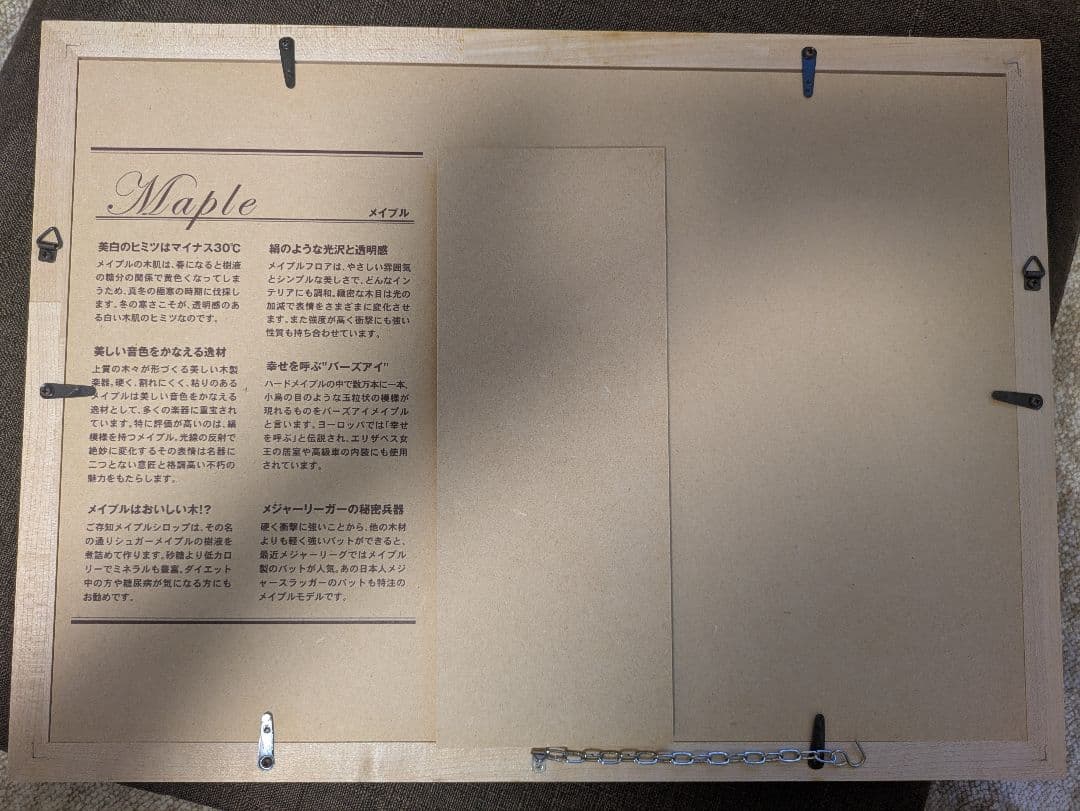 Maple
メイプル
美白のヒミツはマイナス30℃
メイプルの木肌は、春になると樹液
の糖分の関係で黄色くなってしま
うため、真冬の極寒の時期に伐採し
ます。冬の寒さこそが、透明感のあ
る白い木肌のヒミツなのです。
美しい音色をかなえる逸材
上質の木々が形づくる美しい木製
楽器。硬く、割れにくく、粘りのある
メイプルは美しい音色をかなえる
逸材として、多くの楽器に重宝され
ています。特に評価が高いのは、縞
模様を持つメイプル。光線の反射で
絶妙に変化するその表情は名器に
二つとない意匠と格調高い不朽の
魅力をもたらします。
メイプルはおいしい木!?
ご存知メイプルシロップは、その名
の通りシュガーメイプルの樹液を
煮詰めて作ります。砂糖より低カロ
リーでミネラルも豊富。ダイエット
中の方や糖尿病が気になる方にも
お勧めです。
絹のような光沢と透明感
メイプルフロアは、やさしい雰囲気
とシンプルな美しさで、どんなイン
テリアにも調和。緻密な木目は光の
加減で表情をさまざまに変化させ
ます。また強度が高く衝撃にも強い
性質も持ち合わせています。
幸せを呼ぶ"バーズアイ"
ハードメイプルの中で数万本に一本、
小鳥の目のような玉粒状の模様が
現れるものをバーズアイメイプル
と言います。ヨーロッパでは「幸せ
を呼ぶ」と伝説され、エリザベス女
王の居室や高級車の内装にも使用
されています。
メジャーリーガーの秘密兵器
硬く衝撃に強いことから、他の木材
よりも軽く強いバットができると、
最近メジャーリーグではメイプル
製のバットが人気。あの日本人メジ
ャースラッガーのバットも特注の
メイプルモデルです。